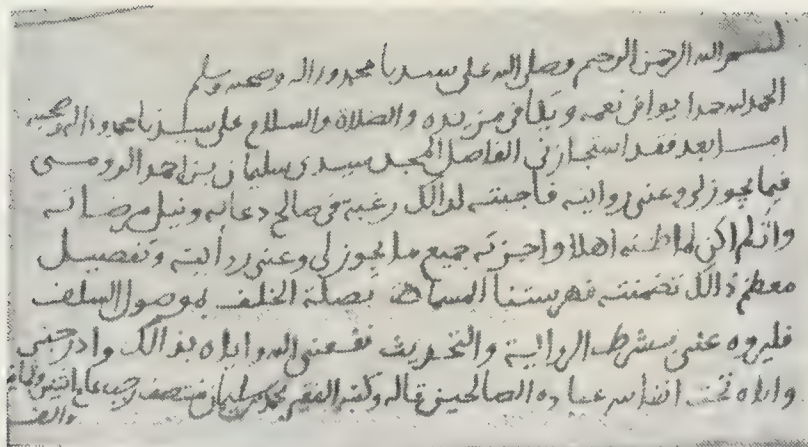 بسم الله الرحمن الرحيم وصلى الله على سيدنا محمد وءاله وصحبه وسلم
الحمد لله حمدا يوافي نعمه ويكافي مزيده والصلاة والسلام على سيدنا محمد وءاله وصحبه
امـــا بعد فقد استجازني الفاضل المجد سيدي سليمان بن احمد الرومـــى
فيما يجوز لي وعني روايته فأجبته لذالك رغبة في صالح دعائه ونيل مرضاته
وان لم اكن لما ظنه اهلا واجزته جميع ما يجوز لي وعني روايته وتفصيـــل
معظم ذالك تضمنته فهرستنا المسماة بصلة الخلف بموصول السلف
فليروه عني بشرط الرواية والتحديث نفعني الله واياه بذالك وادرجني
واياه تحت انفاس عباده الصالحين قاله وكتبه الفقير محمد بن سليمان منتصف رجب عام اثنين وثمانين
والف